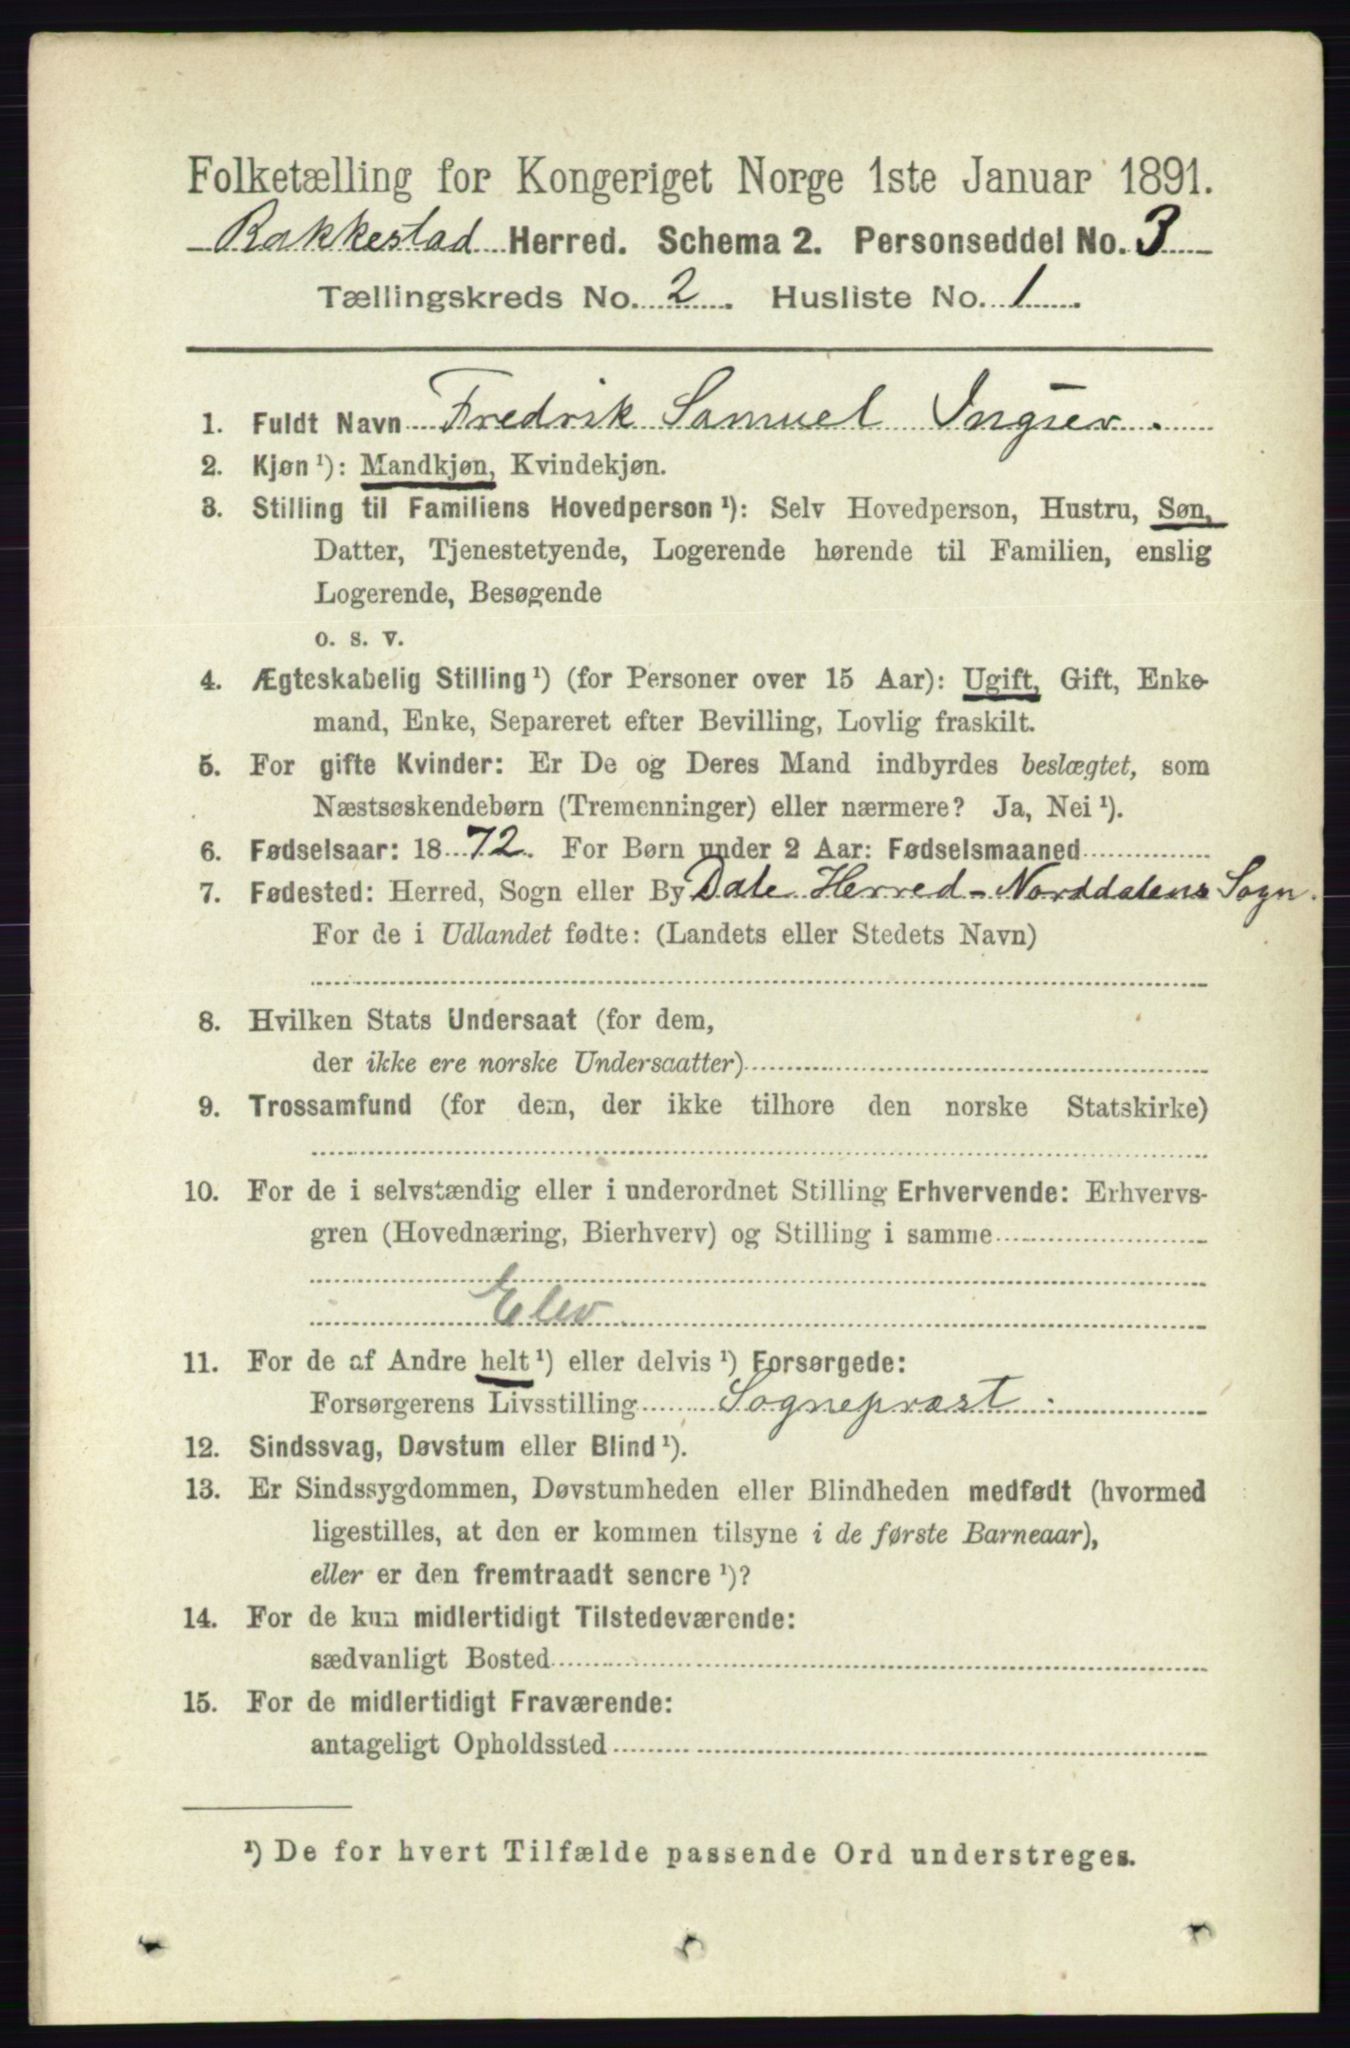 Folketælling for Kongeriget Norge 1ste Januar 1891.
Rakkestad Herred. Schema 2. Personseddel No. 3
Tællingskreds No. 2. Husliste No. 1.
1. Fuldt Navn Fredrik Samuel Ingier.
2. Kjøn ¹): Mandkjøn, Kvindekjøn.
3. Stilling til Familiens Hovedperson ¹): Selv Hovedperson, Hustru, Søn,
Datter, Tjenestetyende, Logerende hørende til Familien, enslig
Logerende, Besøgende
o. s. v.
4. Ægteskabelig Stilling ¹) (for Personer over 15 Aar): Ugift, Gift, Enke-
mand, Enke, Separeret efter Bevilling, Lovlig fraskilt.
5. For gifte Kvinder: Er De og Deres Mand indbyrdes beslægtet, som
Næstsøskendebørn (Tremenninger) eller nærmere? Ja, Nei ¹).
6. Fødselsaar: 1872. For Børn under 2 Aar: Fødselsmaaned
7. Fødested: Herred, Sogn eller By Dale Herred - Norddalens Sogn.
For de i Udlandet fødte: (Landets eller Stedets Navn)
8. Hvilken Stats Undersaat (for dem,
der ikke ere norske Undersaatter)
9. Trossamfund (for dem, der ikke tilhøre den norske Statskirke)
10. For de i selvstændig eller i underordnet Stilling Erhvervende: Erhvervs-
gren (Hovednæring, Bierhverv) og Stilling i samme
Elev
11. For de af Andre helt ¹) eller delvis ¹) Forsørgede:
Forsørgerens Livsstilling Sognepræst.
12. Sindssvag, Døvstum eller Blind ¹).
13. Er Sindssygdommen, Døvstumheden eller Blindheden medfødt (hvormed
ligestilles, at den er kommen tilsyne i de første Barneaar),
eller er den fremtraadt senere ¹)?
14. For de kun midlertidigt Tilstedeværende:
sædvanligt Bosted
15. For de midlertidigt Fraværende:
antageligt Opholdssted
¹) De for hvert Tilfælde passende Ord understreges.